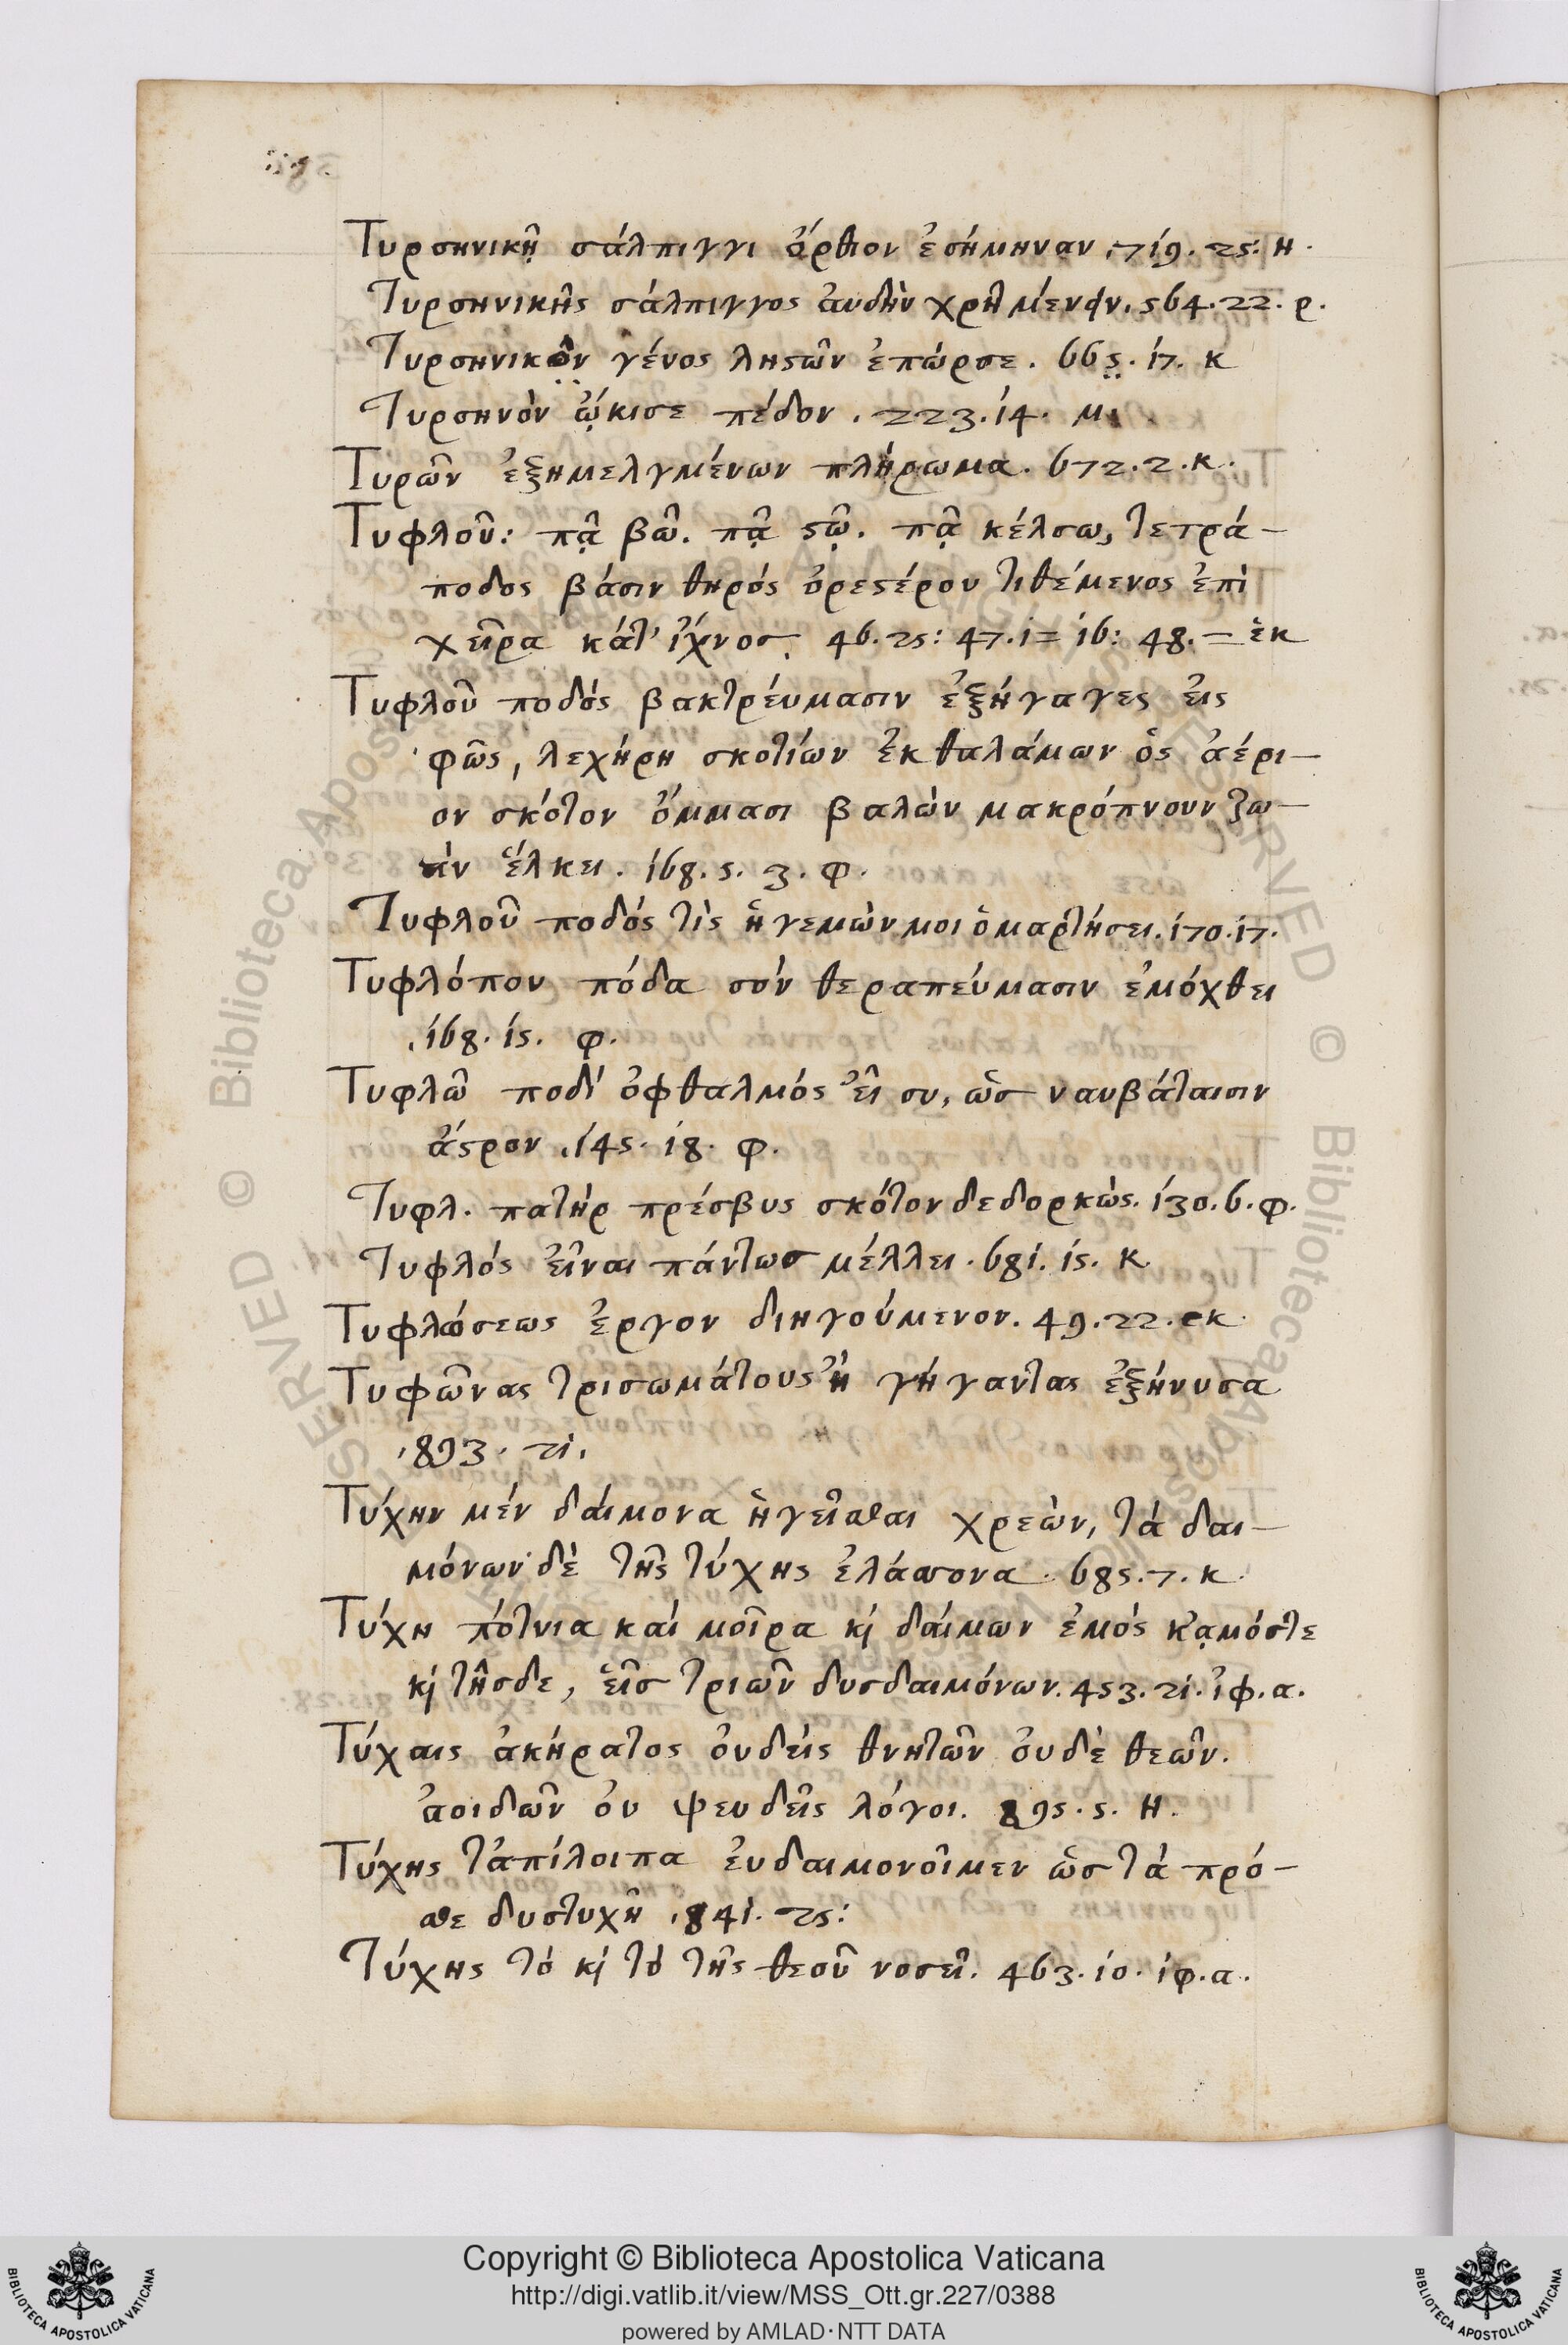 Τυρσηνικῇ σάλπιγγι ὄρθιον ἐσήμηναν. 719. 25: Η.
Τυρσηνικῆς σάλπιγγος ἀυδὴν χρὴ μένειν. 564. 22. ρ.
Τυρσηνικὸν γένος λῃϛῶν ἐπώρσε. 665. 17. κ
Τυρσηνὸν ᾤκισε πέδον. 223. 14. μ.
Τυρῶν ἐξημελγμένων πλήρωμα. 672. 2. κ.
Τυφλοῦ: πᾷ βῶ. πᾷ ϛῶ. πᾷ κέλσω, τετρά-
ποδος βάσιν θηρός ὀρεϛέρου τιθέμενος ἐπὶ
χεῖρα κάτ' ἴχνος. 46. 25: 47. 1= 16: 48. - ἑκ
Τυφλοῦ ποδός βακτρέυμασιν ἐξήγαγες ἐις
φῶς, λεχήρη σκοτίων ἐκ θαλάμων ὃς ἀέρι-
ον σκότον ὄμμασι βαλὼν μακρόπνουν ζω-
ὰν ἕλκει. 168. 5. 3. φ.
Τυφλοῦ ποδός τὶς ἡγεμὼν μοι ὁμαρτήσει. 170. 17.
Τυφλόπον πόδα σόν θεραπεύμασιν ἐμόχθει
168. 15. φ.
Τυφλῶ ποδί ὀφθαλμός εἶ συ, ὡς ναυβάταισιν
ἄϛρον. 145. 18. φ.
Τυφλ. πατήρ πρέσβυς σκότον δεδορκώς. 130. 6. φ.
Τυφλός εἶναι πάντως μέλλει. 681. 15. κ
Τυφλώσεως ἔργον διηγούμενον. 49. 22. εκ.
Τυφῶνας τρισωμάτους ἢ γήγαντας ἐξήνυσα
893. 21.
Τύχην μέν δάιμονα ἡγεῖσθαι χρεὼν, τά δαι-
μόνων δὲ τῆς τύχης ἐλάσσονα. 685. 7. κ.
Τύχη πότνια καί μοῖρα κ̀ δάιμων ἐμός κᾳμόστε
κ̀ τῆσδε, εἷς τριῶν δυσδαιμόνων. 453. 21. ἰφ. α.
Τύχαις ἀκήρατος ὀυδείς θνητῶν ὀυδὲ θεῶν.
ἀοιδῶν ὀυ ψευδεῖς λόγοι. 895. 5. Η.
Τύχης τἀπίλοιπα ἐυδαιμονοῖμεν ὡς τά πρό-
σθε δυστυχῆ. 841. 25:
Τύχης τό κ̀ τό τῆς θεοῦ νοσεῖ. 463. 10. ἰφ. α.
Copyright © Biblioteca Apostolica Vaticana
http://digi.vatlib.it/view/MSS_Ott.gr.227/0388
powered by AMLAD·NTT DATA